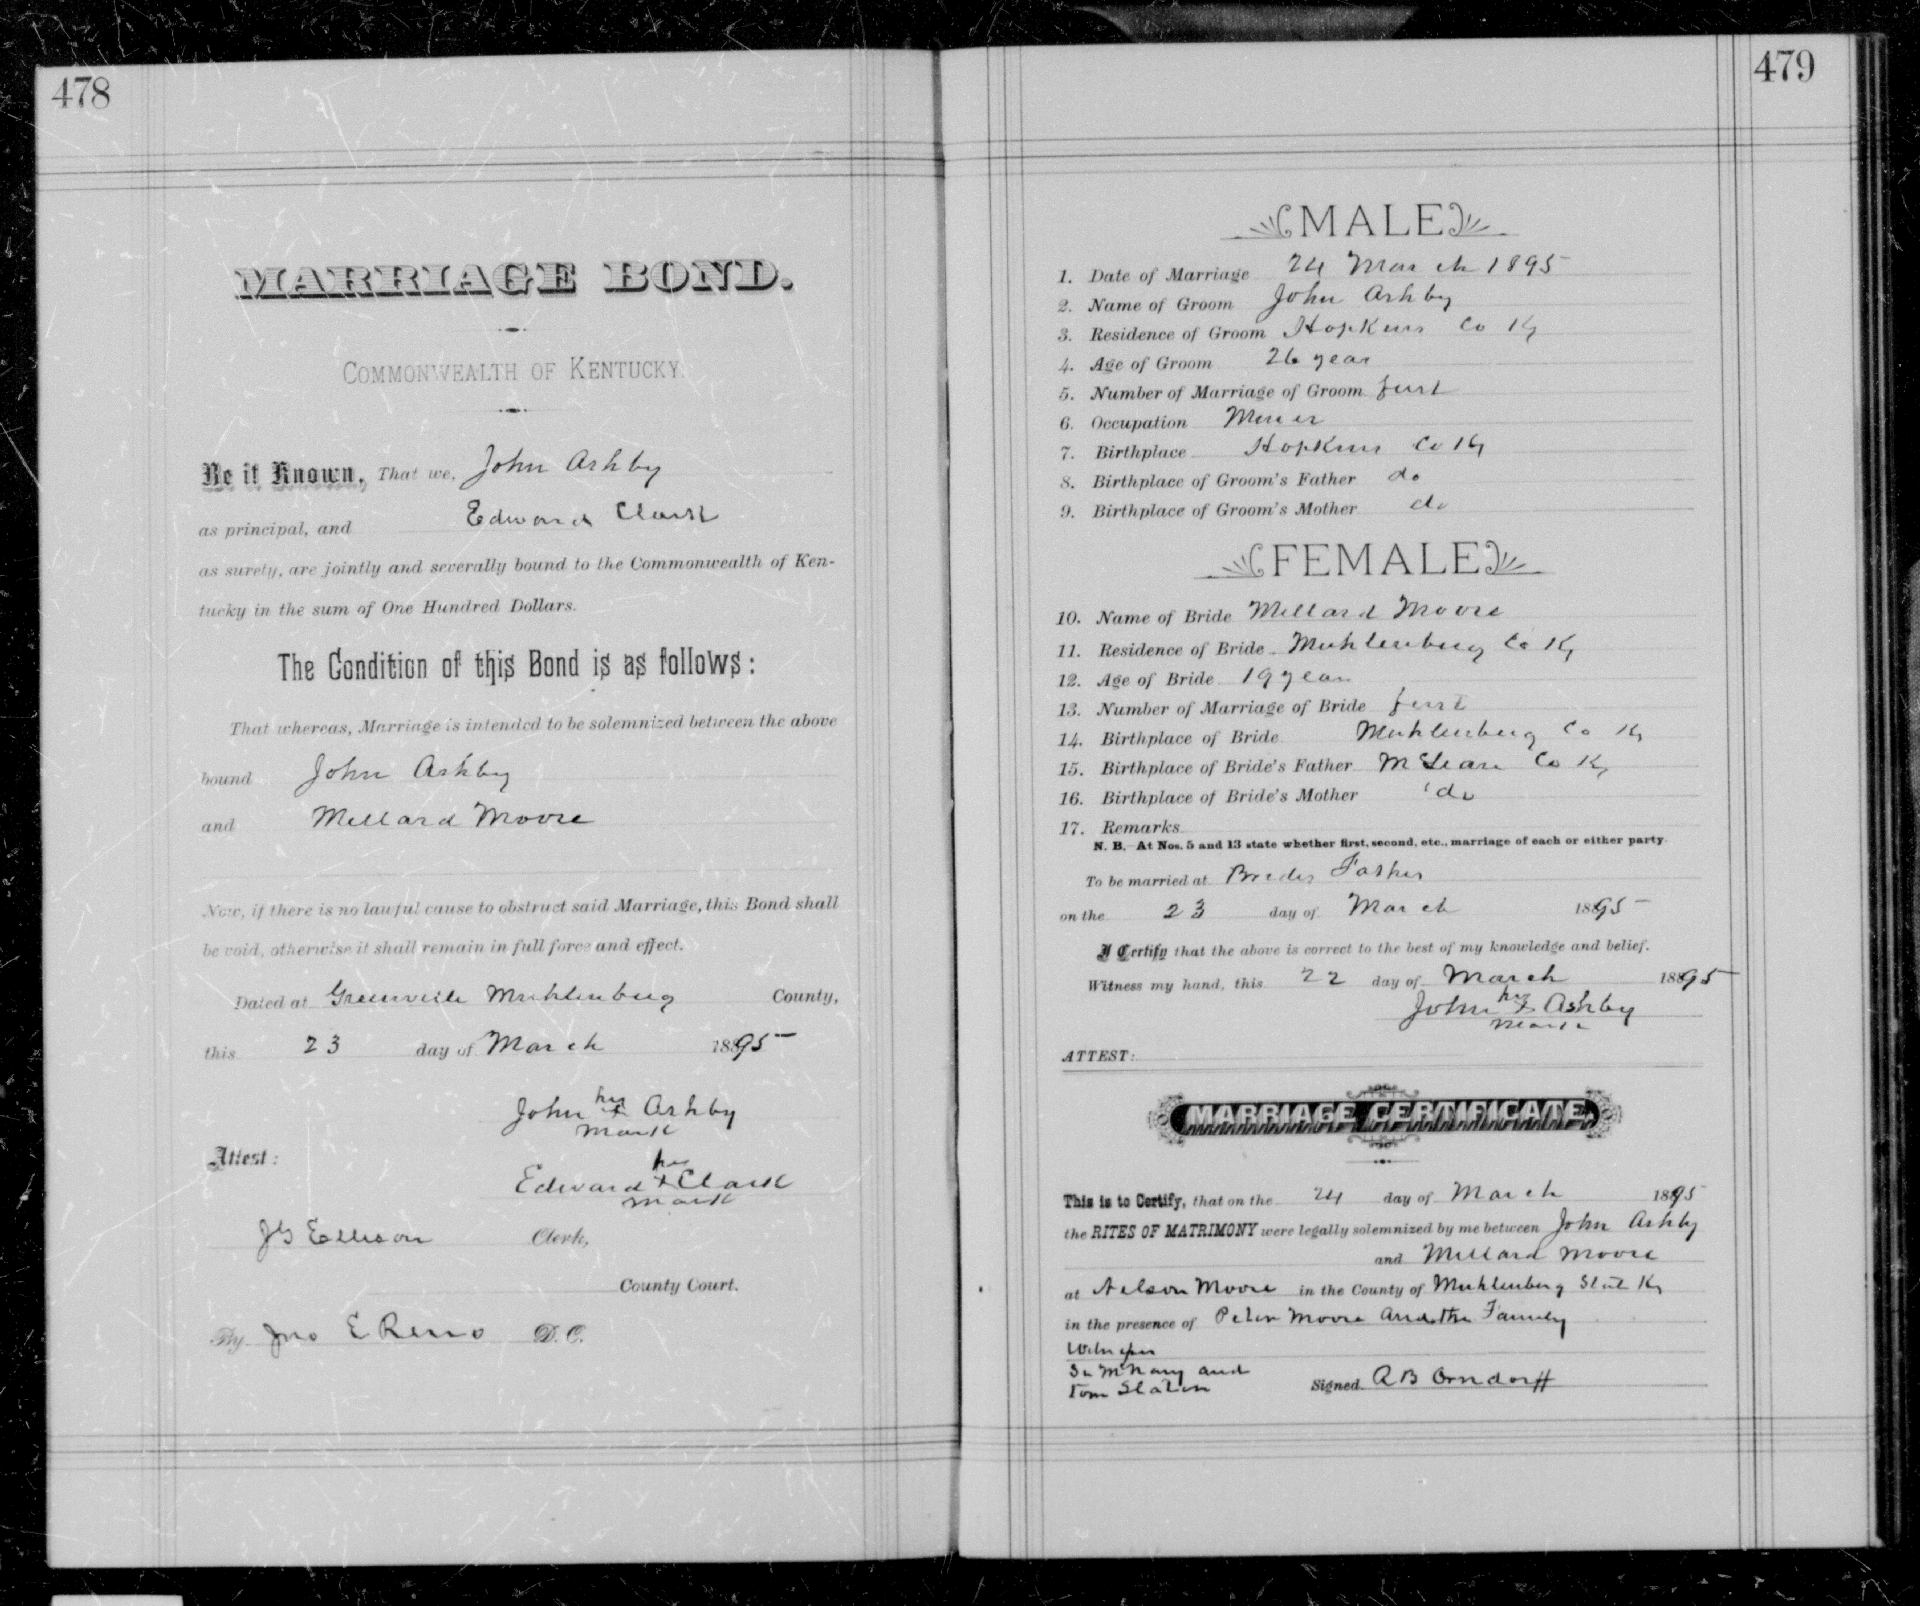 478
MARRIAGE BOND.
COMMONWEALTH OF KENTUCKY.
Be it Known, That we, John Ashby
as principal, and Edward Clark
as surety, are jointly and severally bound to the Commonwealth of Ken-
tucky in the sum of One Hundred Dollars.
The Condition of this Bond is as follows:
That whereas, Marriage is intended to be solemnized between the above
bound John Ashby
and Millard Moore
Now, if there is no lawful cause to obstruct said Marriage, this Bond shall
be void, otherwise it shall remain in full force and effect.
Dated at Greenville Muhlenburg County,
this 23 day of March 1895
John his x Ashby
mark
Attest:
Edward his x Clark
mark
JG Ellison Clerk,
County Court.
By Jno E Reno D. C.
479
MALE
1. Date of Marriage 24 March 1895
2. Name of Groom John Ashby
3. Residence of Groom Hopkins Co Ky
4. Age of Groom 26 year
5. Number of Marriage of Groom first
6. Occupation Miner
7. Birthplace Hopkins Co Ky
8. Birthplace of Groom's Father do
9. Birthplace of Groom's Mother do
FEMALE
10. Name of Bride Millard Moore
11. Residence of Bride Muhlenburg Co Ky
12. Age of Bride 19 year
13. Number of Marriage of Bride first
14. Birthplace of Bride Muhlenburg Co Ky
15. Birthplace of Bride's Father McLean Co Ky
16. Birthplace of Bride's Mother do
17. Remarks
N. B.—At Nos. 5 and 13 state whether first, second, etc., marriage of each or either party.
To be married at Brides Father
on the 23 day of March 1895
I Certify that the above is correct to the best of my knowledge and belief.
Witness my hand, this 22 day of March 1895
John his x Ashby
mark
ATTEST:
MARRIAGE CERTIFICATE.
This is to Certify, that on the 24 day of March 1895
the RITES OF MATRIMONY were legally solemnized by me between John Ashby
and Millard Moore
at Nelson Moore in the County of Muhlenburg State Ky
in the presence of Peter Moore And the Family
Witness
McNary and
Tom Slaton Signed A B Orndorff